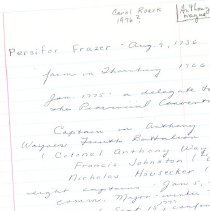 Carol Roark
1976?
Anthony
Wayne
Persifor Frazer - Aug. 9, 1736
farm in Thornbury 1766
Jan. 1775: a delegate to
the Provincial Convention
Captain in Anthony
Wayne's Fourth Battalion
(Colonel Anthony Way
Francis Johnston (
Nicholas Housecker (
eight captains Jan 5,
comm. Major
Sept 18